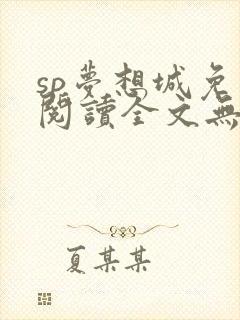 sp夢想城免
閱讀全文無
夏某某